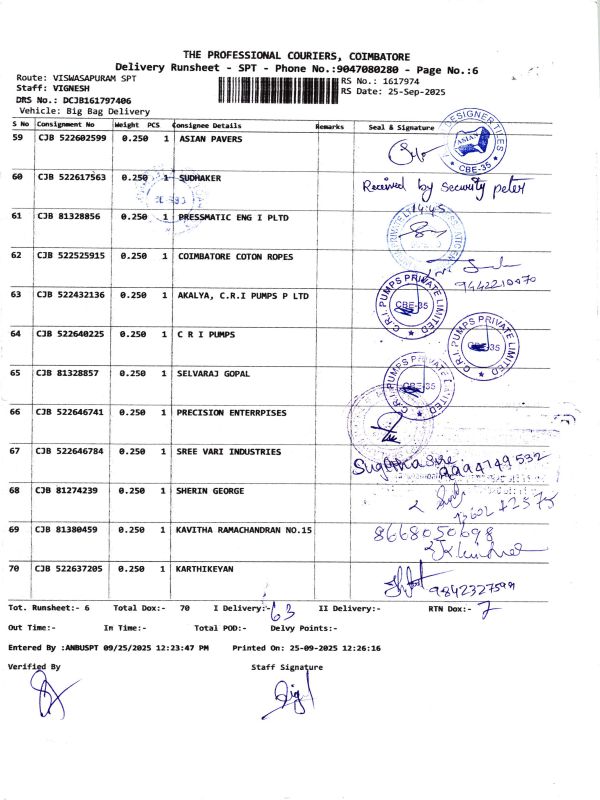 THE PROFESSIONAL COURIERS, COIMBATORE
Delivery Runsheet - SPT - Phone No.:9047080280 - Page No.:6
Route: VISWASAPURAM SPT RS No.: 1617974
Staff: VIGNESH RS Date: 25-Sep-2025
DRS No.: DCJB161797406
Vehicle: Big Bag Delivery
S No Consignment No Weight PCS Consignee Details Remarks Seal & Signature
59 CJB 522602599 0.250 1 ASIAN PAVERS
DESIGNER TILES ASIAN CBE-35
60 CJB 522617563 0.250 1 SUDHAKER
Received by security peter
61 CJB 81328856 0.250 1 PRESSMATIC ENG I PLTD
14:45
62 CJB 522525915 0.250 1 COIMBATORE COTON ROPES
9442210470
63 CJB 522432136 0.250 1 AKALYA, C.R.I PUMPS P LTD
C.R.I. PUMPS PRIVATE LIMITED CBE-35
64 CJB 522640225 0.250 1 C R I PUMPS
C.R.I. PUMPS PRIVATE LIMITED CBE-35
65 CJB 81328857 0.250 1 SELVARAJ GOPAL
C.R.I. PUMPS PRIVATE LIMITED CBE-35
66 CJB 522646741 0.250 1 PRECISION ENTERRPISES
67 CJB 522646784 0.250 1 SREE VARI INDUSTRIES
9994749532
68 CJB 81274239 0.250 1 SHERIN GEORGE
69 CJB 81380459 0.250 1 KAVITHA RAMACHANDRAN NO.15
8668050698
70 CJB 522637205 0.250 1 KARTHIKEYAN
9842327599
Tot. Runsheet:- 6 Total Dox:- 70 I Delivery:- 63 II Delivery:- RTN Dox:- 7
Out Time:- In Time:- Total POD:- Delvy Points:-
Entered By :ANBUSPT 09/25/2025 12:23:47 PM Printed On: 25-09-2025 12:26:16
Verified By Staff Signature